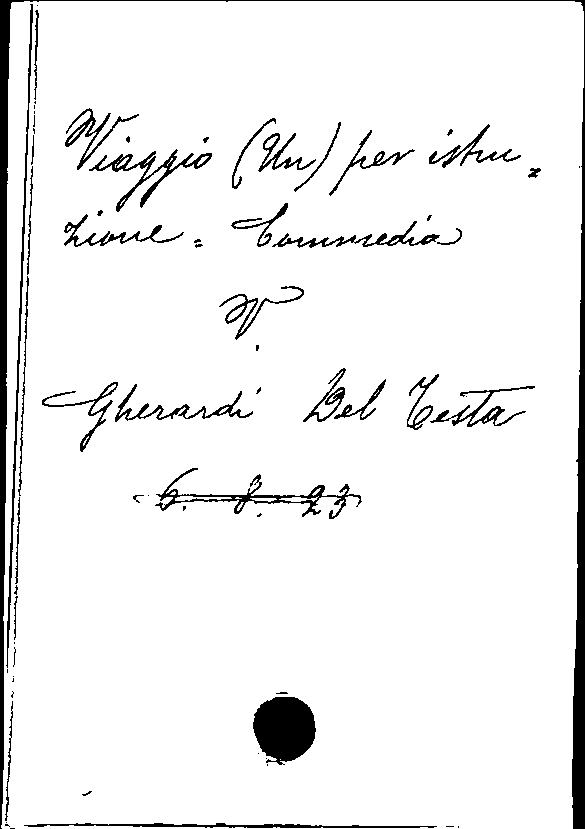 Viaggio (Un) per istru=
zione = Commedia
V.
Gherardi Del Testa
6. 8. 23